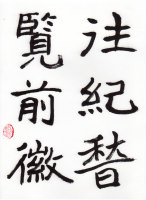 往紀替
覽前徽